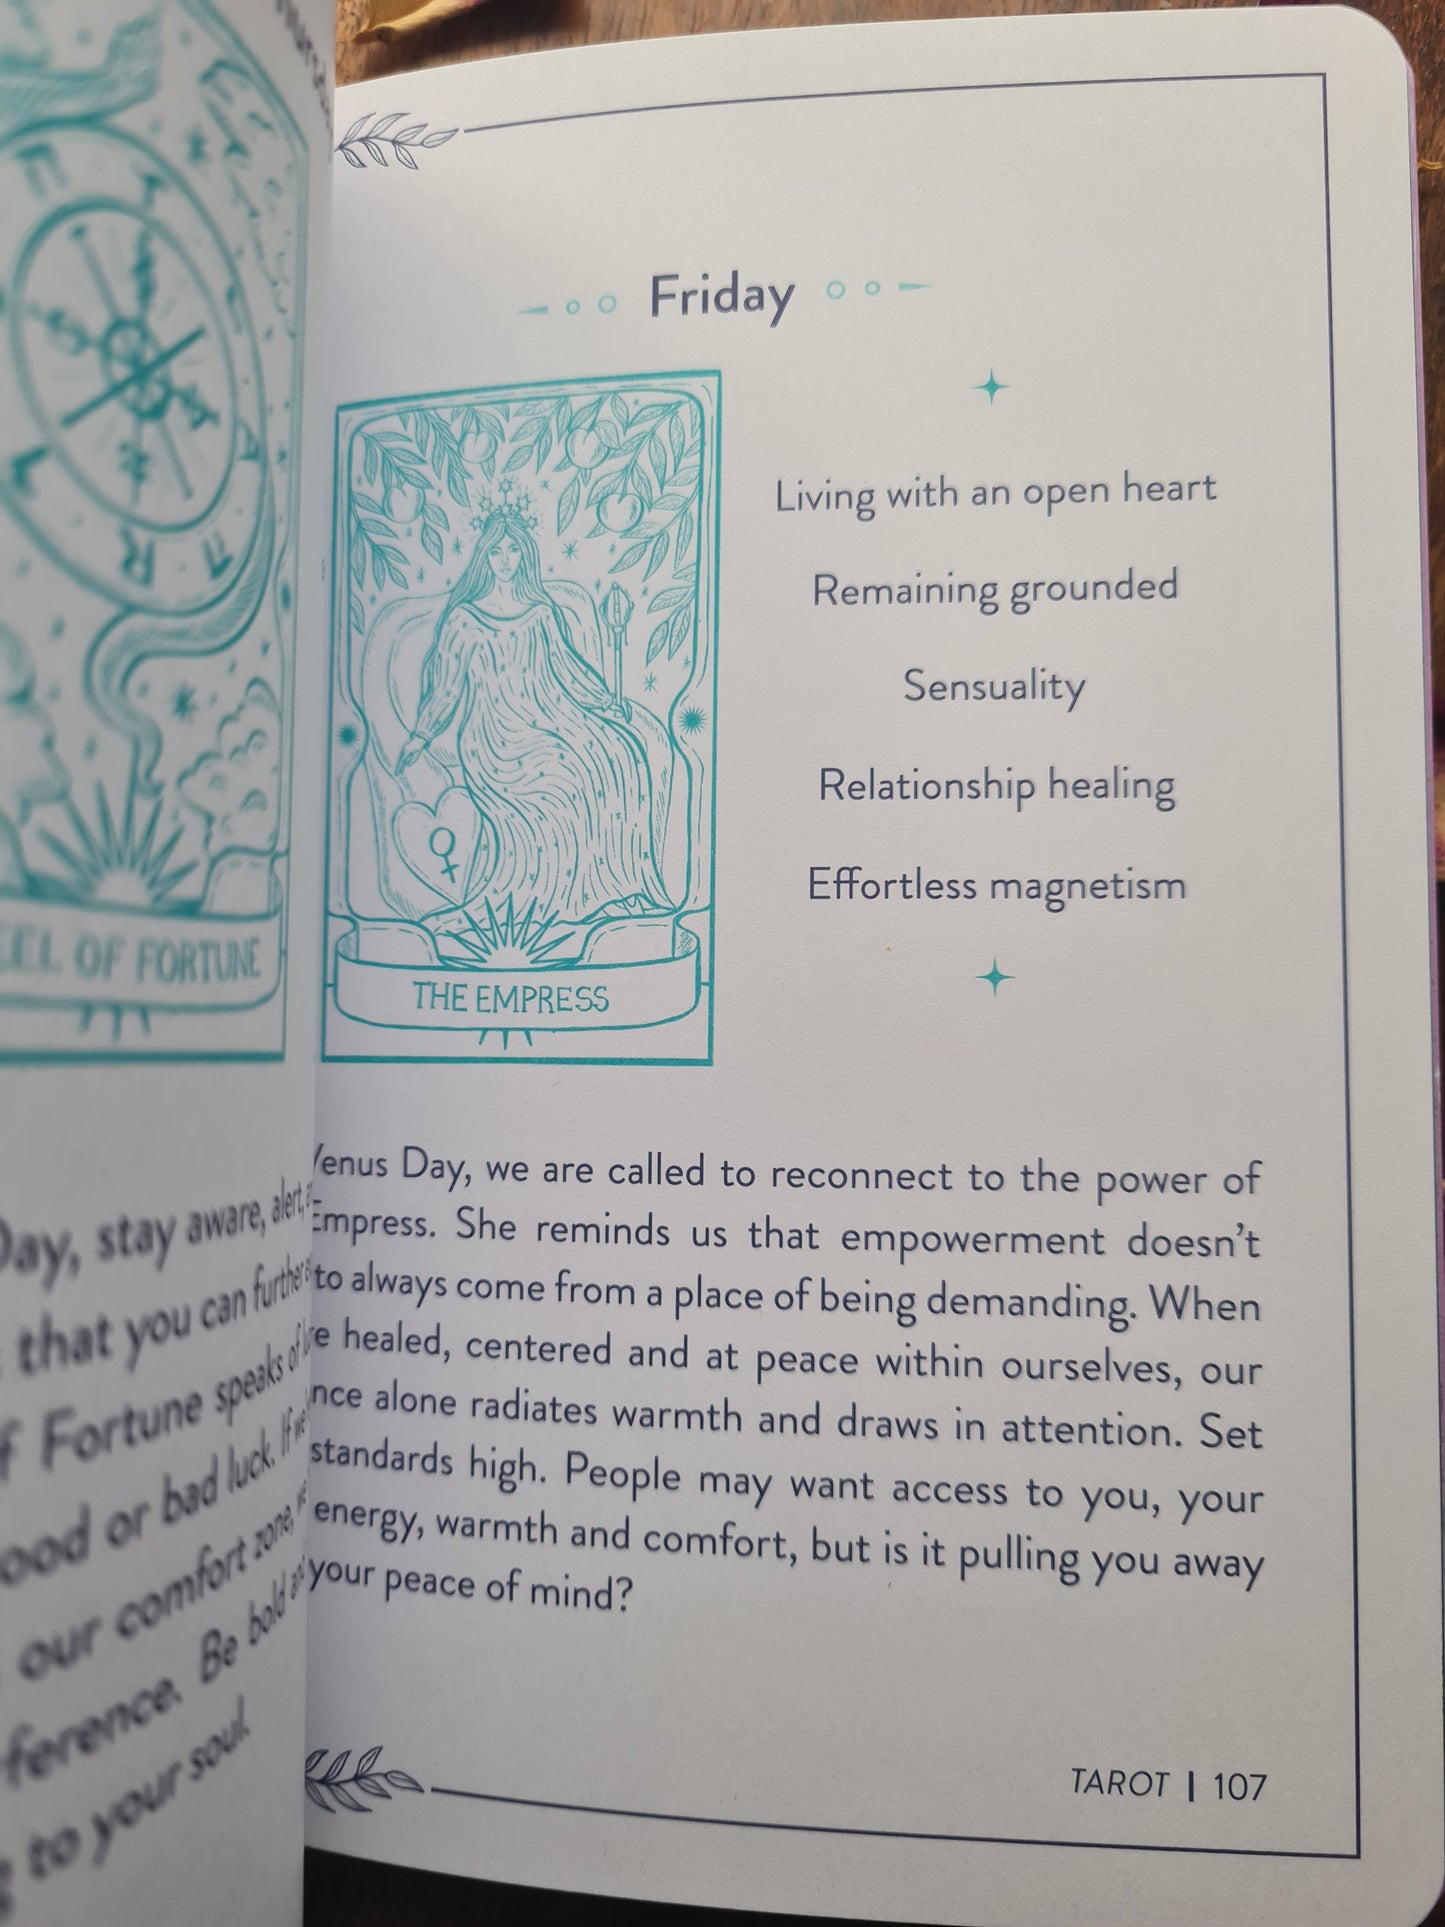 EEL OF FORTUNE
Day, stay aware, alert,
that you can further
Fortune speaks of
ood or bad luck. If we
our comfort zone,
ference. Be bold
to your soul.
Friday
Living with an open heart
Remaining grounded
Sensuality
Relationship healing
Effortless magnetism
THE EMPRESS
Venus Day, we are called to reconnect to the power of
Empress. She reminds us that empowerment doesn't
to always come from a place of being demanding. When
re healed, centered and at peace within ourselves, our
nce alone radiates warmth and draws in attention. Set
standards high. People may want access to you, your
energy, warmth and comfort, but is it pulling you away
your peace of mind?
TAROT | 107